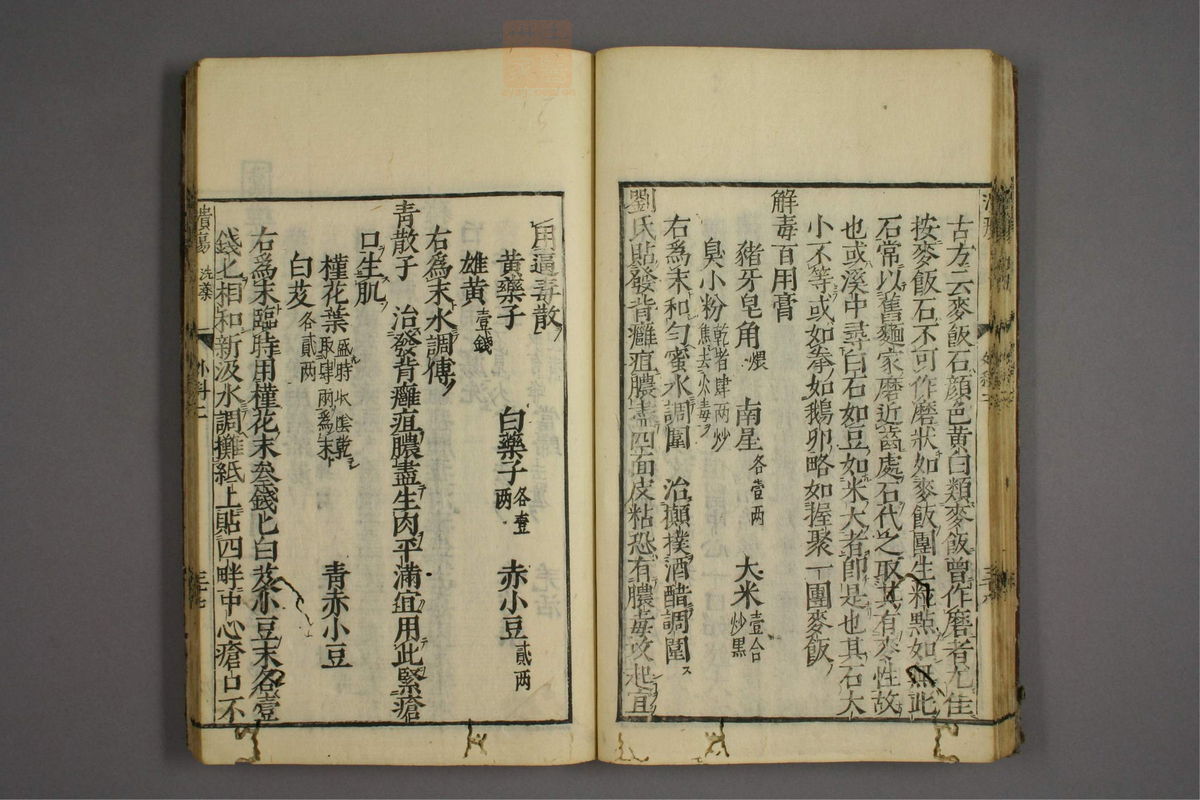 古方云麥飯石顔色黃白類麥飯曾作磨者尤佳
按麥飯石不可作磨狀如麥飯團生粒點如無此
石當以舊麵家磨近齒處石代之取其有麥性故
也或溪中尋白石如豆如米大者卽是也其石大
小不等或如拳如鵝卵略如握聚一團麥飯
解毒百用膏
豬牙皂角煨 南星各壹两 大米壹合炒黒
臭小粉乾者肆两炒焦去火毒
右爲末和勻蜜水調圍 治攧撲酒醋調圍
劉氏貼發背癰疽膿盡四面皮粘恐有膿毒攻起宜
用逼毒散
黃藥子 白藥子各壹两 赤小豆貳两
雄黃壹錢
右爲末水調傅
青散子 治發背癰疽膿盡生肉平滿宜用此緊瘡
口生肌
槿花葉盛時收陰乾取肆两爲末 青赤小豆
白芨各貳两
右爲末臨時用槿花末叁錢匕白芨小豆末各壹
錢匕相和新汲水調攤紙上貼四畔中心瘡口不
潰瘍 洗藥 外科二 三七